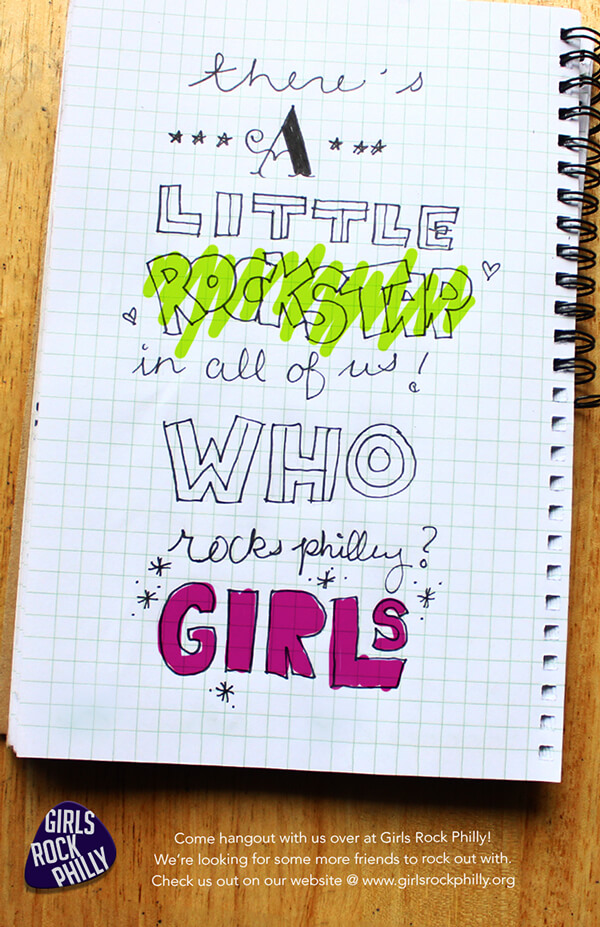 there's
A
LITTLE
ROCKSTAR
in all of us!
WHO
rocks philley?
GIRLS
GIRLS
ROCK
PHILLY
Come hangout with us over at Girls Rock Philly!
We're looking for some more friends to rock out with.
Check us out on our website @ www.girlsrockphilly.org